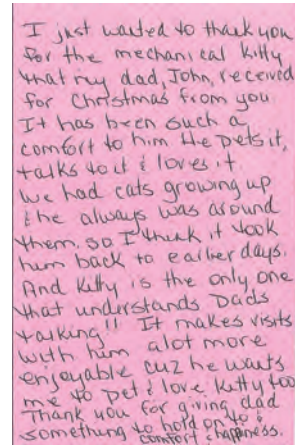 I just wanted to thank you
for the mechanical kitty
that my dad, John, received
for Christmas from you
It has been such a
comfort to him He pets it,
talks to it & loves it
we had cats growing up
& he always was around
them. so I think it took
him back to earlier days.
And Kitty is the only one
that understands Dads
talking!! It makes visits
with him alot more
enjoyable cuz he wants
me to pet & love kitty too
Thank you for giving dad
something to hold on to &
comfort & happiness.